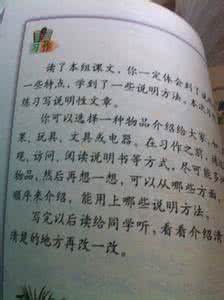 习作
读了本组课文，你一定体会到了说
一些特点，学到了一些说明方法。本次
练习写说明性文章。
你可以选择一种物品介绍给大家，如
果、玩具、文具或电器。在习作之前，
观、访问、阅读说明书等方式，尽可能多
物品，然后再想一想，可以从哪些方面
顺序来介绍，能用上哪些说明方法。
写完以后读给同学听，看看介绍清
清楚的地方再改一改。